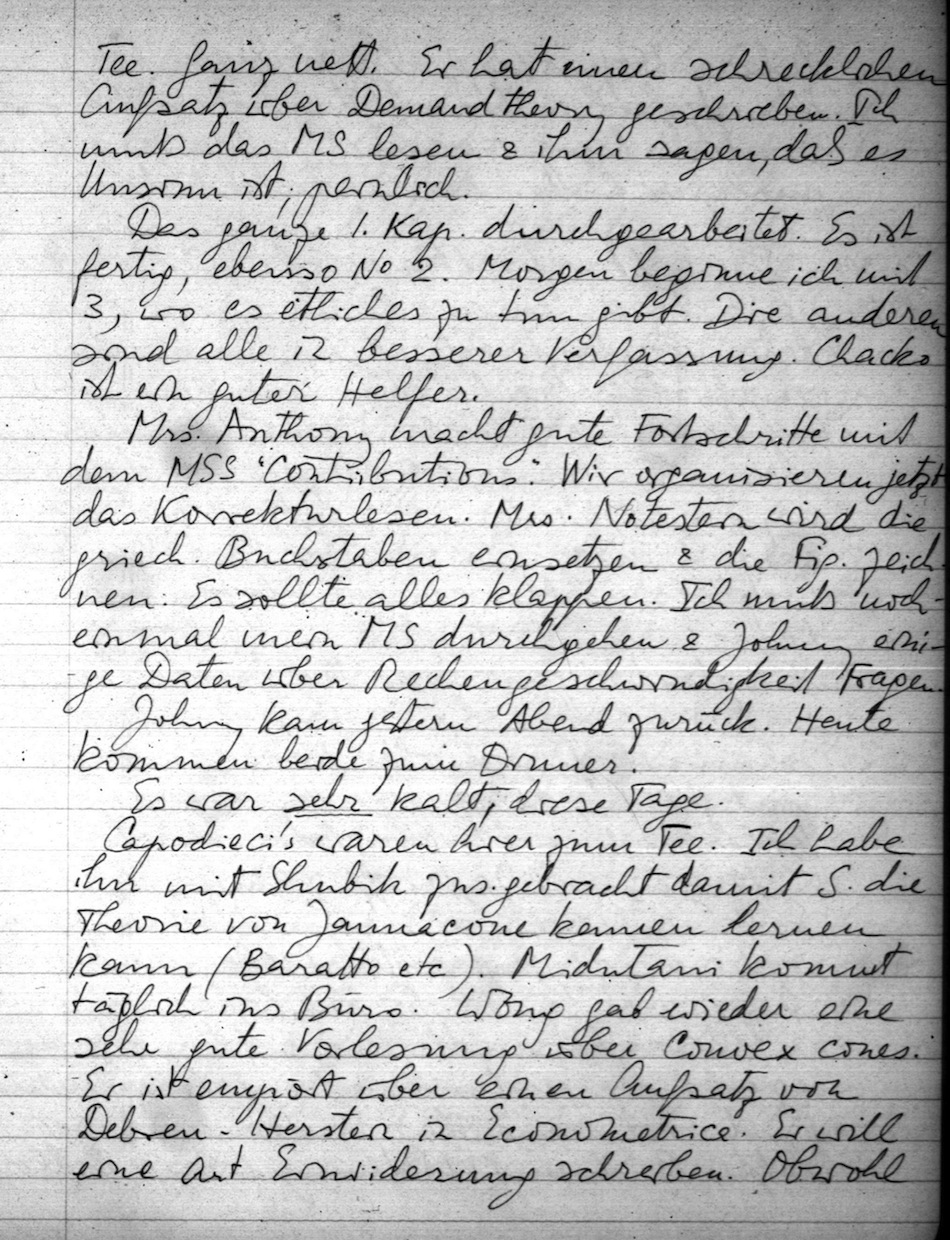 Tee. Ganz nett. Er hat einen schrecklichen
Aufsatz über Demand theory geschrieben. Ich
muß das MS lesen & ihm sagen, daß es
Unsinn ist; peinlich.
Das ganze 1. Kap. durchgearbeitet. Es ist
fertig, ebenso No 2. Morgen beginne ich mit
3, wo es etliches zu tun gibt. Die anderen
sind alle in besserer Verfassung. Chacko
ist ein guter Helfer.
Mrs. Anthony macht gute Fortschritte mit
dem MSS "Contributions". Wir organisieren jetzt
das Korrekturlesen. Mrs. Notestein wird die
griech. Buchstaben einsetzen & die Fig. zeich-
nen. Es sollte alles klappen. Ich muß noch-
einmal mein MS durchgehen & Johnny eini-
ge Daten über Rechengeschwindigkeit fragen.
Johnny kam gestern Abend zurück. Heute
kommen beide zum Dinner.
Es war sehr kalt, diese Tage.
Capodieci's waren hier zum Tee. Ich habe
ihn mit Shubik zus.gebracht damit S. die
Theorie von Jannacone kennen lernen
kann (Baratto etc). Midutani kommt
täglich ins Büro. Wong gab wieder eine
sehr gute Vorlesung über Convex cones.
Er ist empört über einen Aufsatz von
Debreu-Herstein in Econometrica. Er will
eine Art Erwiderung schreiben. Obwohl